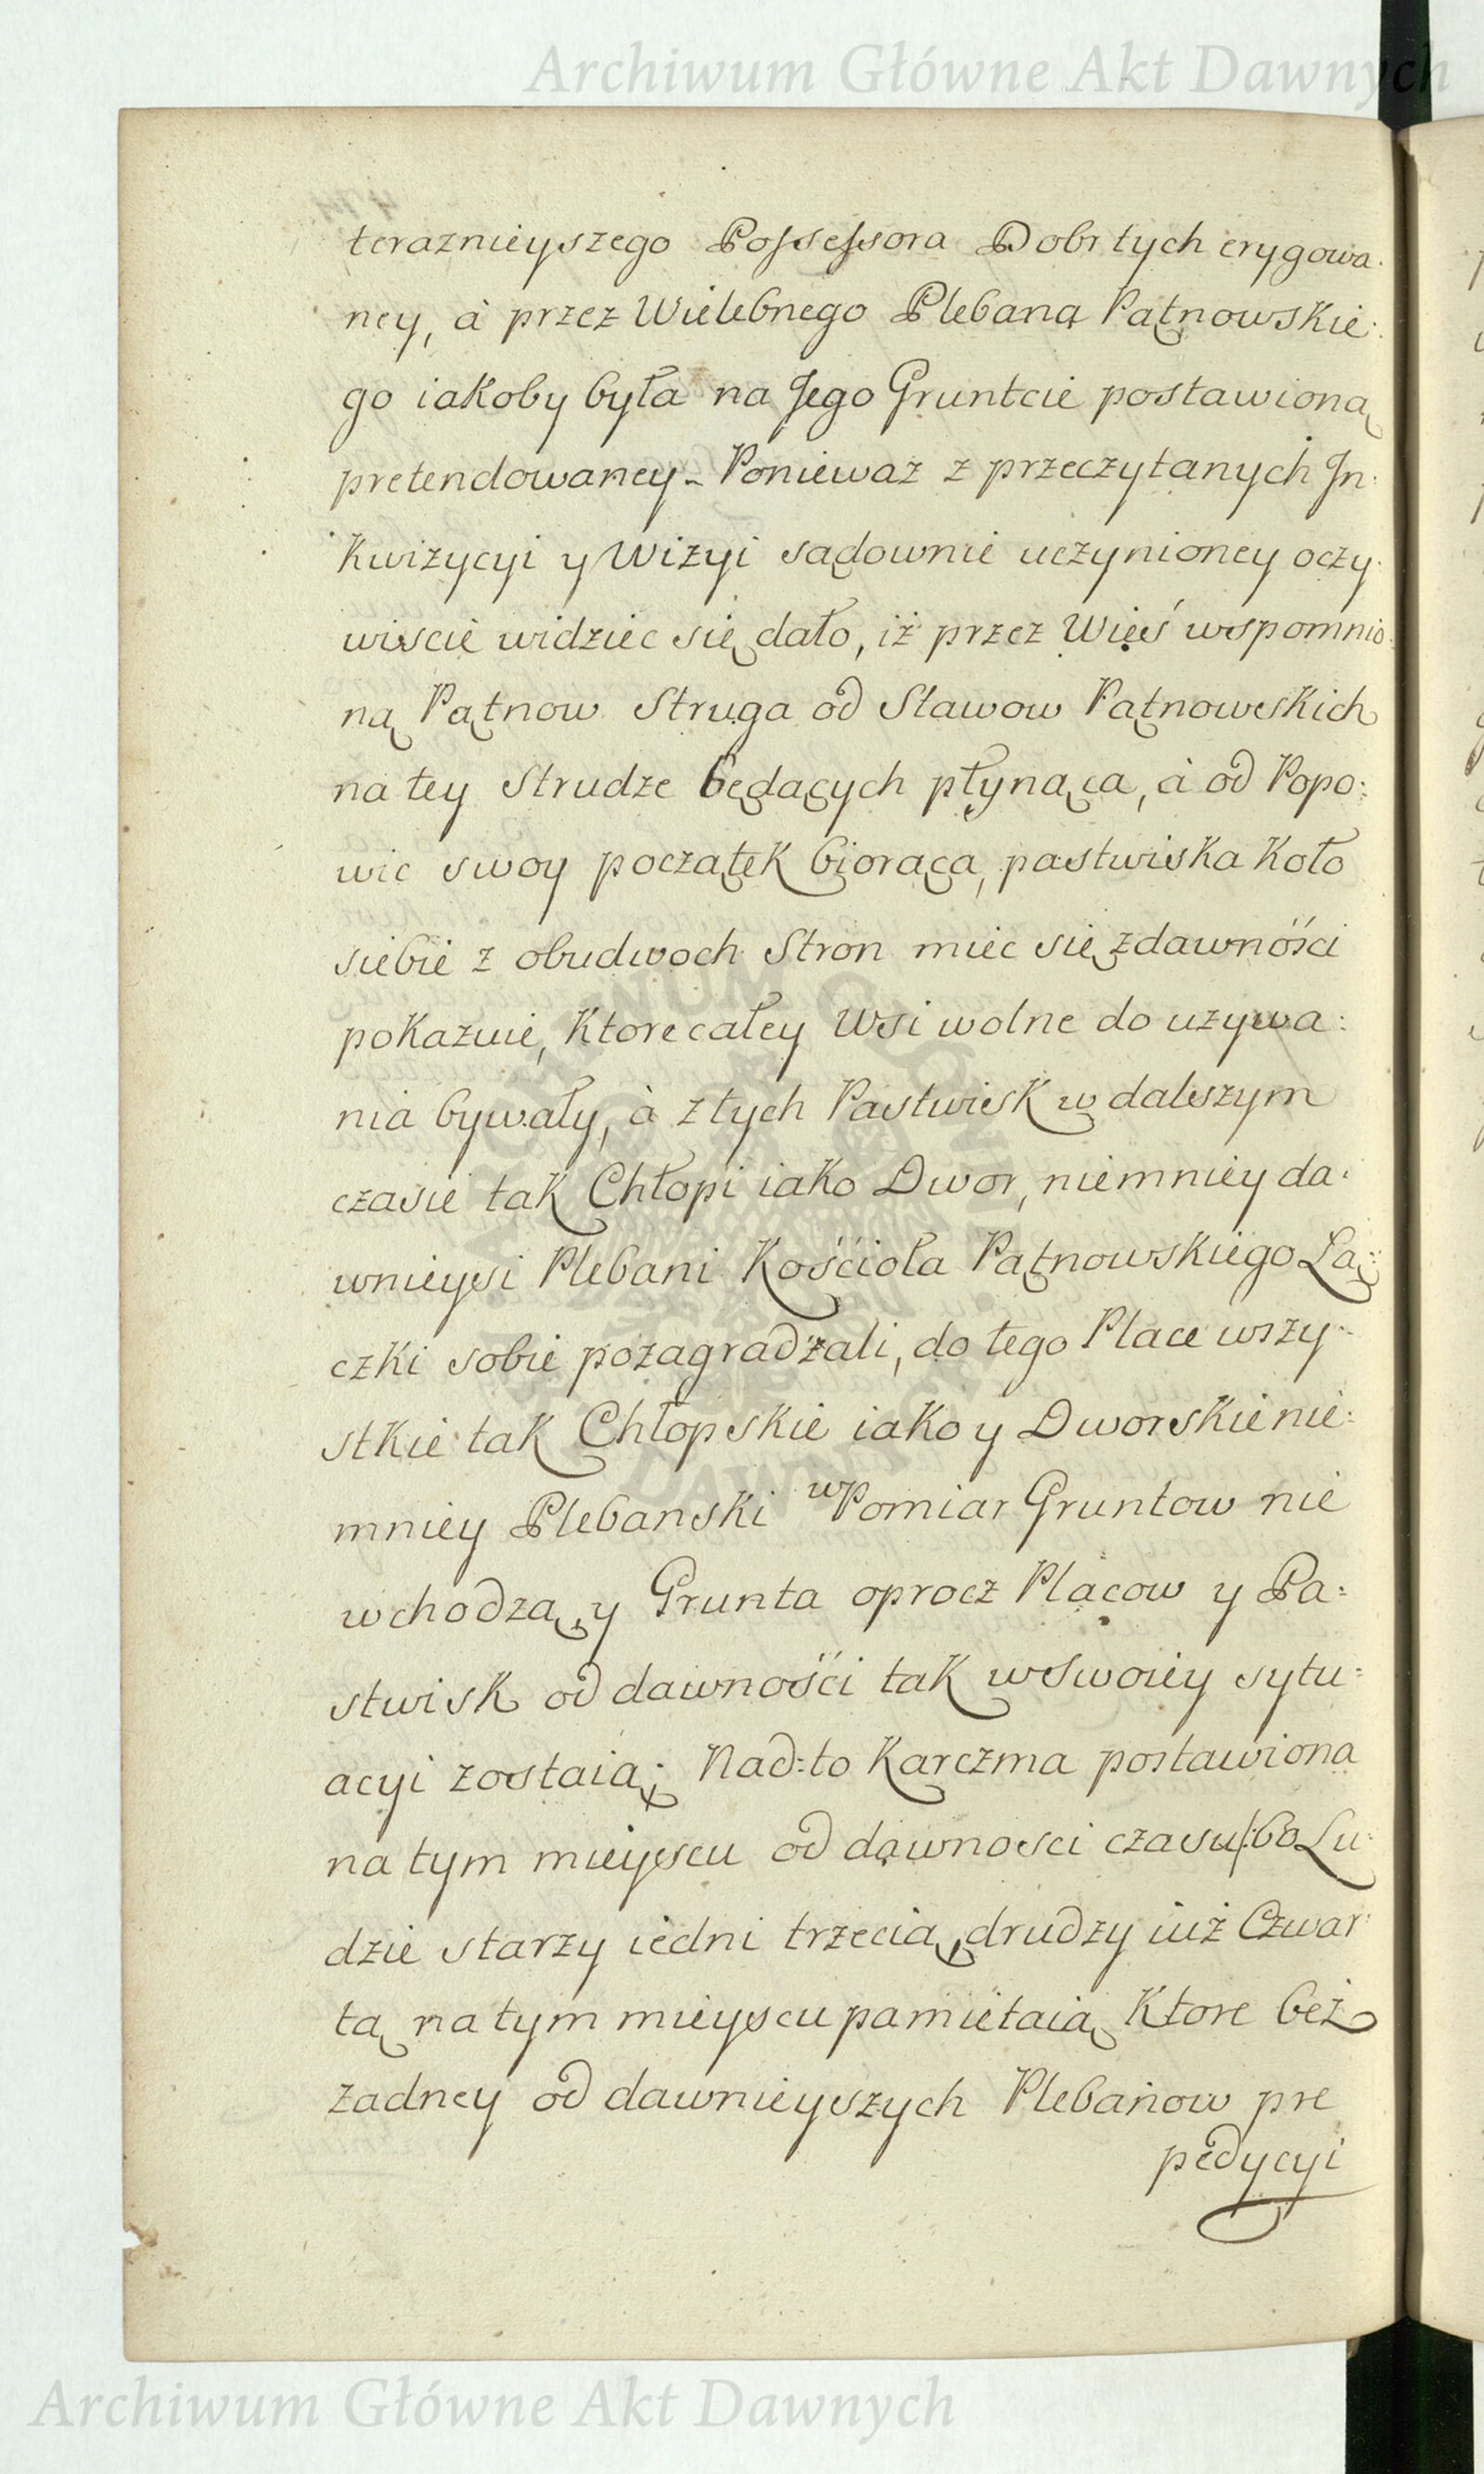 Archiwum Główne Akt Dawnych
teraznieyszego Possessora Dobr tych erygowa:
ney, à przez Wielebnego Plebana Pątnowskie:
go iakoby była na Jego Gruntcie postawioną
pretendowaney - Poniewaz z przeczytanych In:
kwizycyi y Wizyi sądownie uczynioney oczy:
wiscie widziec się dało, iż przez Wieś wspomnio:
ną Pątnow Struga od Stawow Pątnowskich
na tey Strudze będących płynąca, à od Popo:
wic swoy początek biorąca, pastwiska koło
siebie z obudwoch Stron miec się z dawności
pokazuie, ktore całey Wsi wolne do uzywa:
nia bywały, à z tych Pastwisk w dalszym
czasie tak Chłopi iako Dwor, niemniey da:
wnieysi Plebani Kościoła Pątnowskiego Łą:
czki sobie pozagradzali, do tego Place wszy:
stkie tak Chłopskie iako y Dworskie nie:
mniey Plebanski w Pomiar Gruntow nie
wchodzą, y Grunta oprocz Placow y Pa:
stwisk od dawności tak w swoiey sytu:
acyi zostaią; Nad:to Karczma postawiona
na tym mieyscu od dawnosci czasu /:bo Lu:
dzie starzy iedni trzecią, drudzy iuż Czwar:
tą na tym mieyscu pamiętaią ktore beż
żadney od dawnieyszych Plebanow pre
pedycyi
Archiwum Główne Akt Dawnych